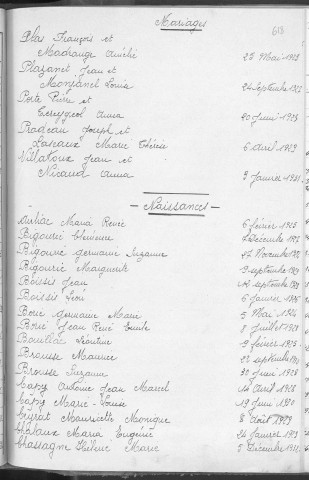 Mariages
613
Plas François et
Madrange Amélie 22 Mai 1923
Plazanet Jean et
Monjanel Louise 24 Septembre 1927
Porte Pierre et
Anna 20 Juin 1923
Pradeau Joseph et
Lascaux Marie Thérèse 6 avril 1929
Villatoux Jean et
Nicaud Anna 3 Janvier 1931
- Naissances -
Auliac Maria Renée 6 février 1925
Bigourie Clémence
Bigourie Germaine Suzanne 27 Novembre
Bigourie Marguerite 9 septembre
Boissis Jean septembre
Boissis Léon 6 Janvier
Borie Germaine Marie 5 Mai 1924
Borie Jean René Emile 8 Juillet
Bouillac Léontine 9 février 1925
Brousse Maurice 22 septembre
Brousse Suzanne 30 Juin 1928
Capy Antoine Jean Marcel 14 Avril 1928
Capy Marie-Louise 19 Juin 1920
Mauricette Monique 8 Août 1929
Maria Eugénie 24 Janvier
Chassagne Hélène Marie 5 Décembre